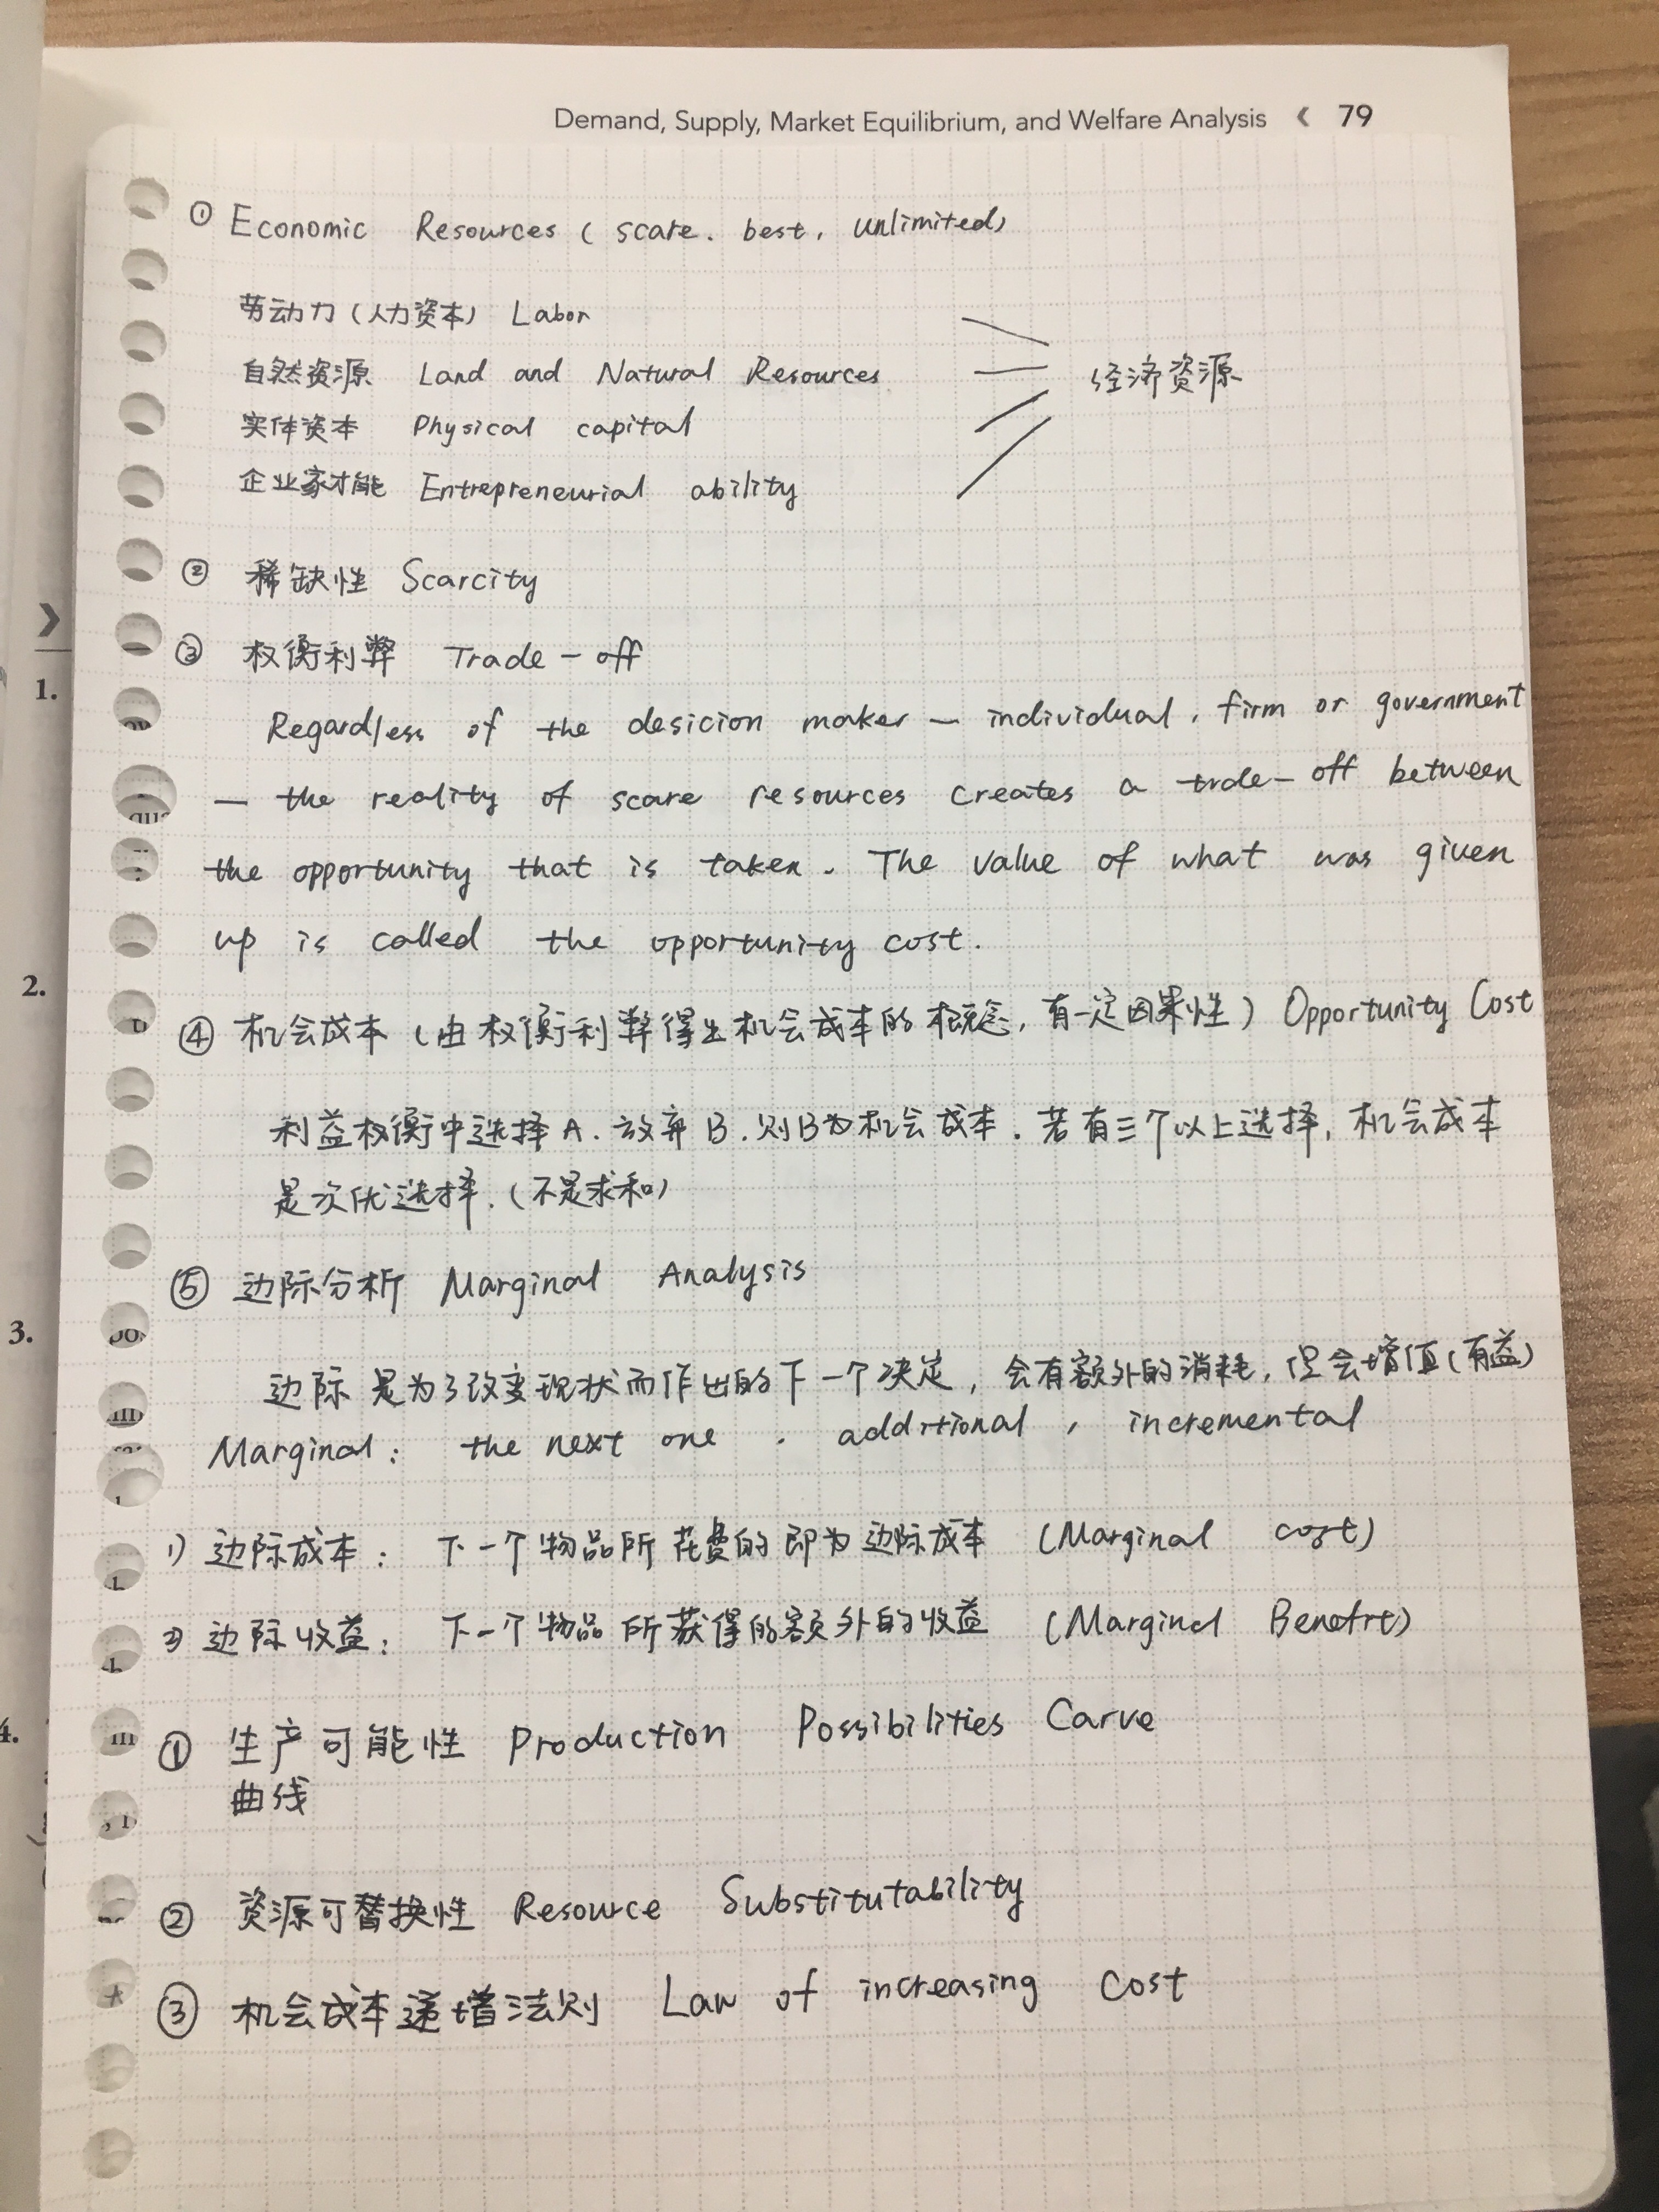 Demand, Supply, Market Equilibrium, and Welfare Analysis ‹ 79
① Economic Resources ( scare. best, unlimited)
劳动力(人力资本) Labor
自然资源 Land and Natural Resources
经济资源
实体资本 Physical capital
企业家才能 Entrepreneurial ability
② 稀缺性 Scarcity
③ 权衡利弊 Trade-off
1.
Regardless of the desicion maker — individual, firm or government
— the reality of scare resources creates a trade-off between
the opportunity that is taken. The value of what was given
up is called the opportunity cost.
2.
④ 机会成本 (由权衡利弊得出机会成本的概念, 有一定因果性) Opportunity Cost
利益权衡中选择A. 放弃B. 则B为机会成本. 若有三个以上选择, 机会成本
是次优选择. (不是求和)
⑤ 边际分析 Marginal Analysis
3.
边际是为了改变现状而作出的下一个决定, 会有额外的消耗, 但会增值(有益)
Marginal: the next one . additional , incremental
1) 边际成本: 下一个物品所花费的即为边际成本 (Marginal cost)
2) 边际收益: 下一个物品所获得的额外的收益 (Marginal Benefit)
4.
① 生产可能性 Production Possibilities Carve
曲线
② 资源可替换性 Resource Substitutability
③ 机会成本递增法则 Law of increasing cost